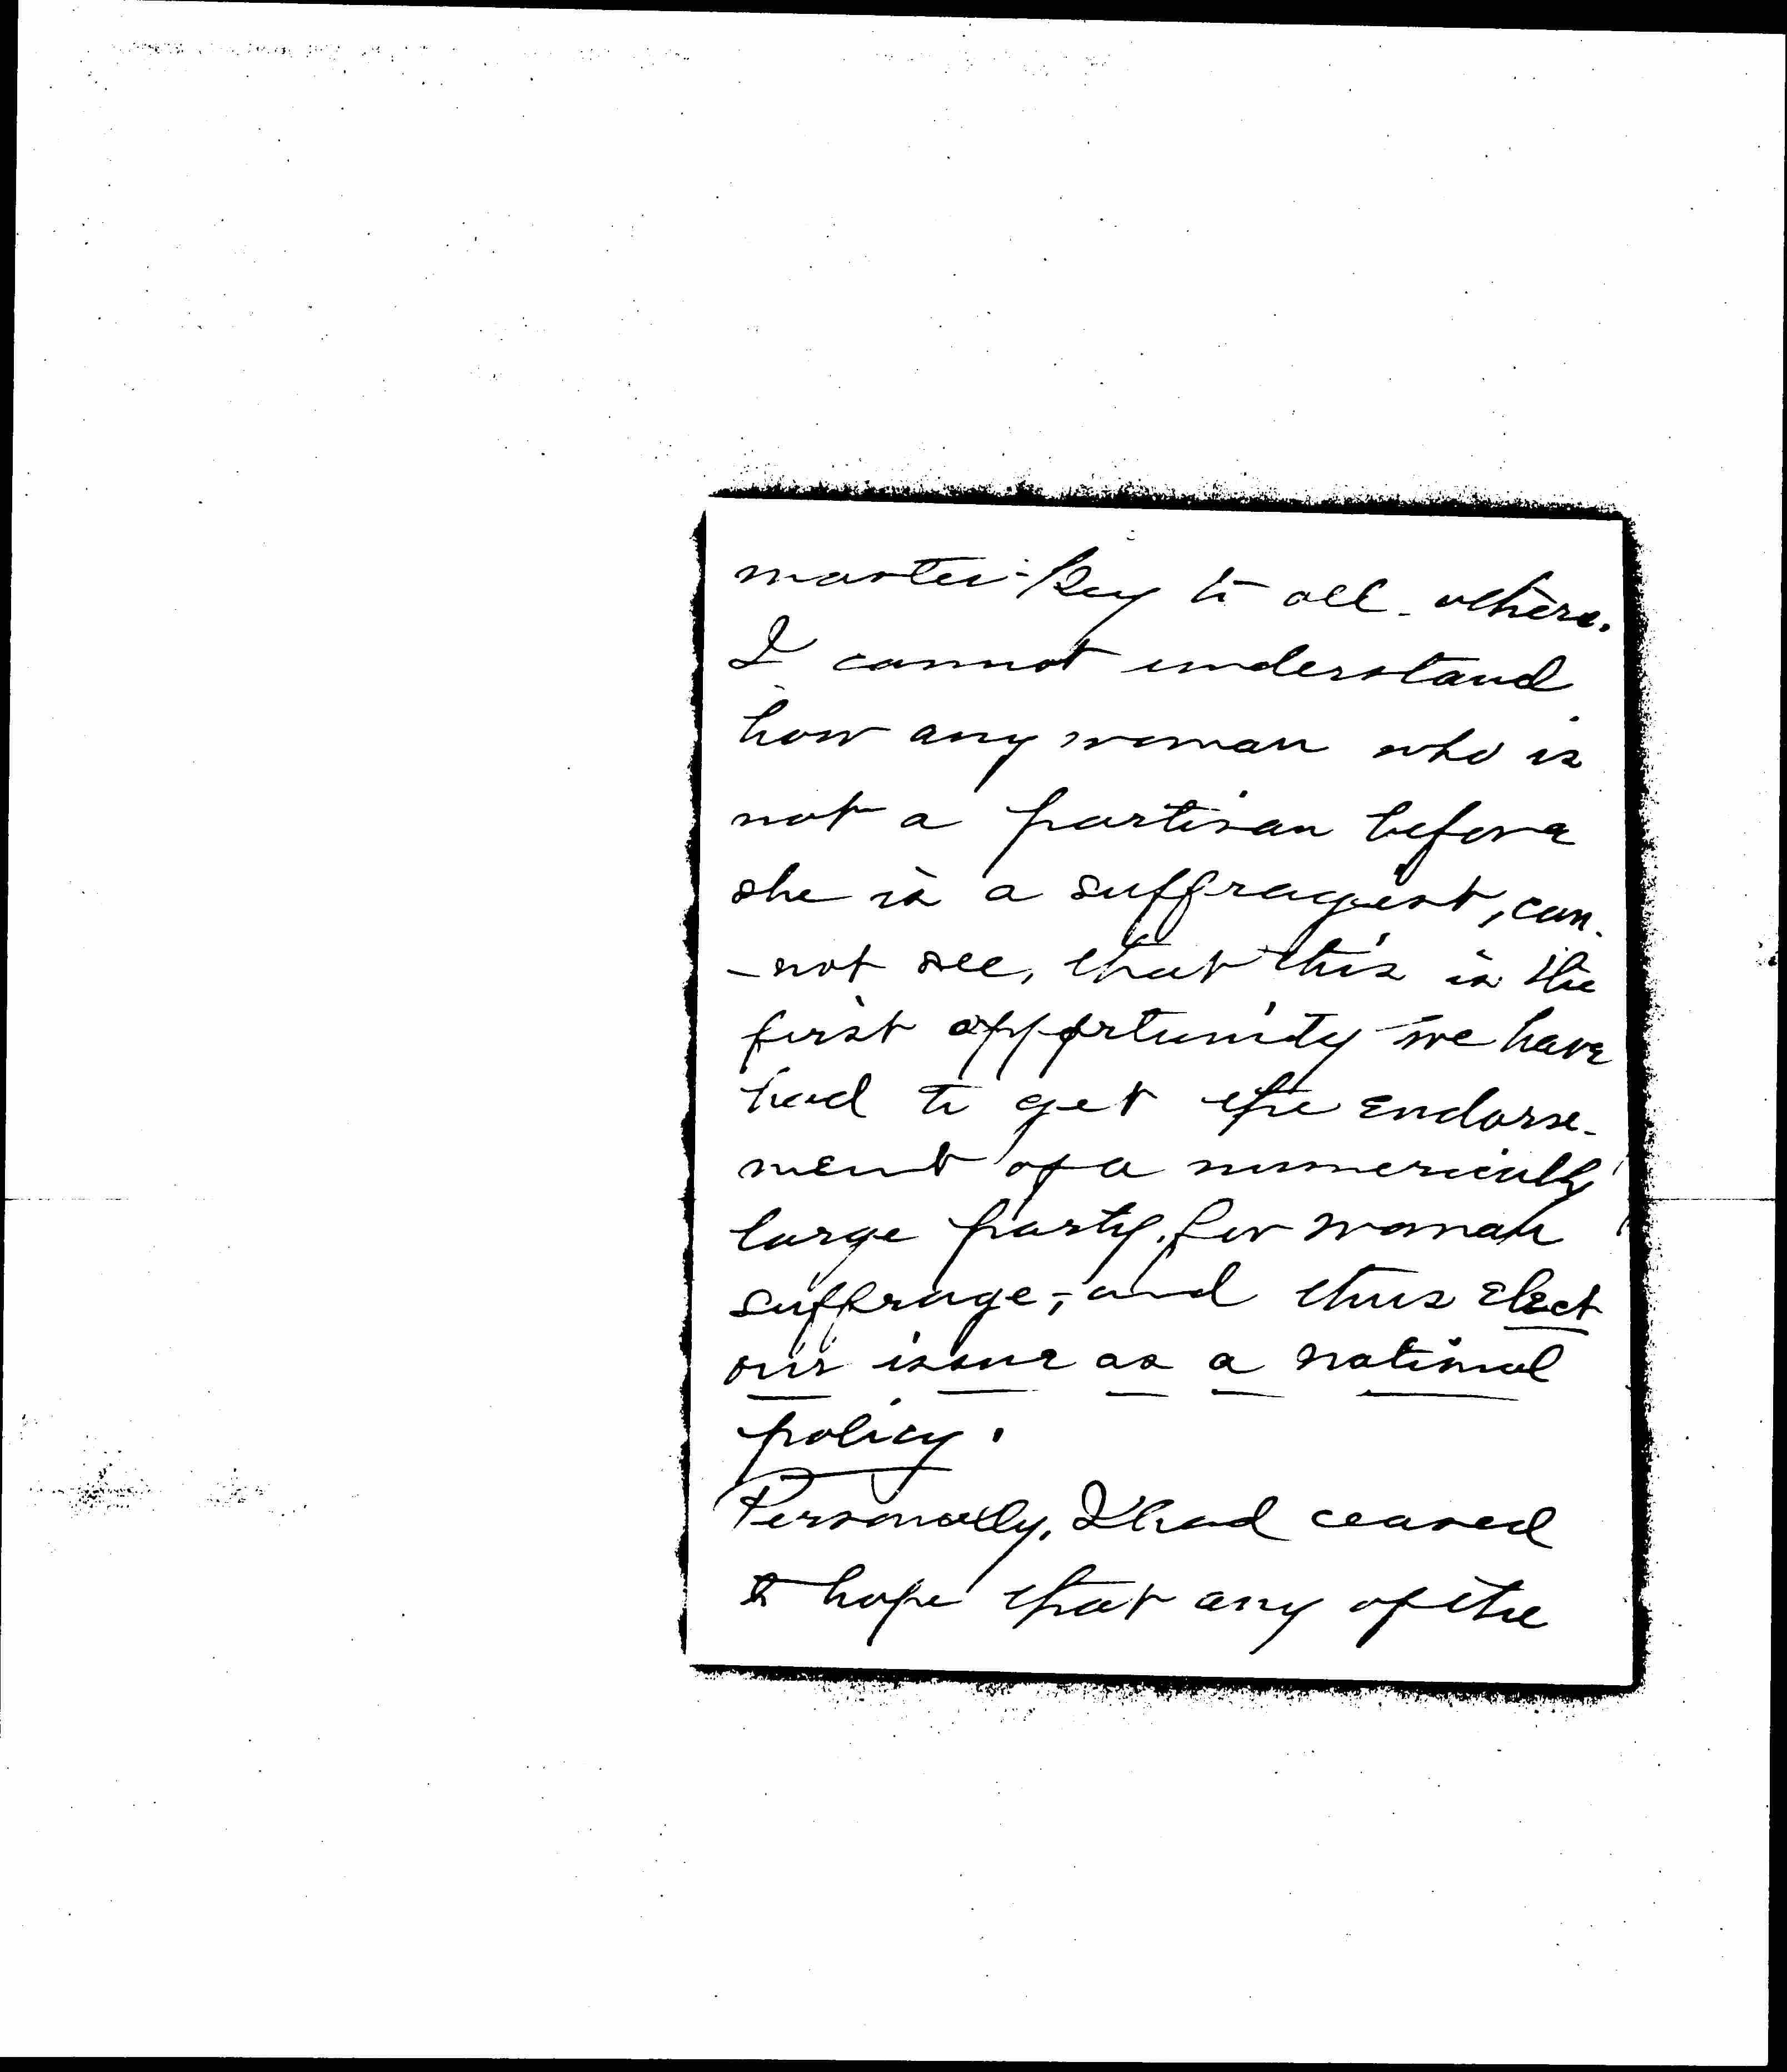 master-key to all others.
I cannot understand
how any woman who is
not a partisan before
she is a suffragist, can-
-not see, that this is the
first opportunity we have
had to get the endorse-
ment of a numerically
large party, for woman
suffrage, and thus elect
our issue as a national
policy.
Personally, I had ceased
to hope that any of the